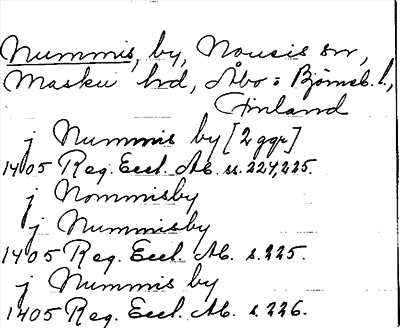 Nummis, by, Nousis sn,
Masku hd, Åbo = Björneb. l.,
Finland
j Nummis by [2 ggr]
1405 Reg. Eccl. Ab. ss. 224, 225.
j Nommisby
j Nummisby
1405 Reg. Eccl. Ab. s. 225.
j Nummis by
1405 Reg. Eccl. Ab. s. 226.